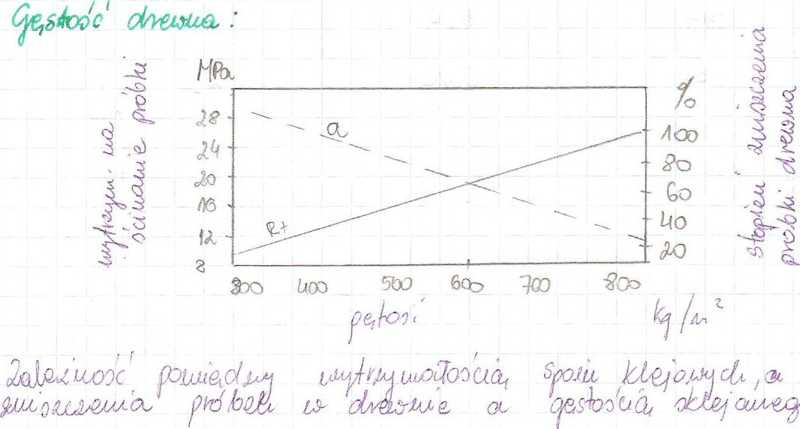 Gęstość drewna:
MPa
28
24
20
16
12
8
wytrzym. na
ścinanie próbki
a
Rt
%
100
80
60
40
20
stopień zniszczenia
próbki drewna
300 400 500 600 700 800
gętość
kg/m²
Zależność pomiędzy wytrzymałością spoin klejowych, a
zniszczenia próbek w drewnie a gęstością sklejanego